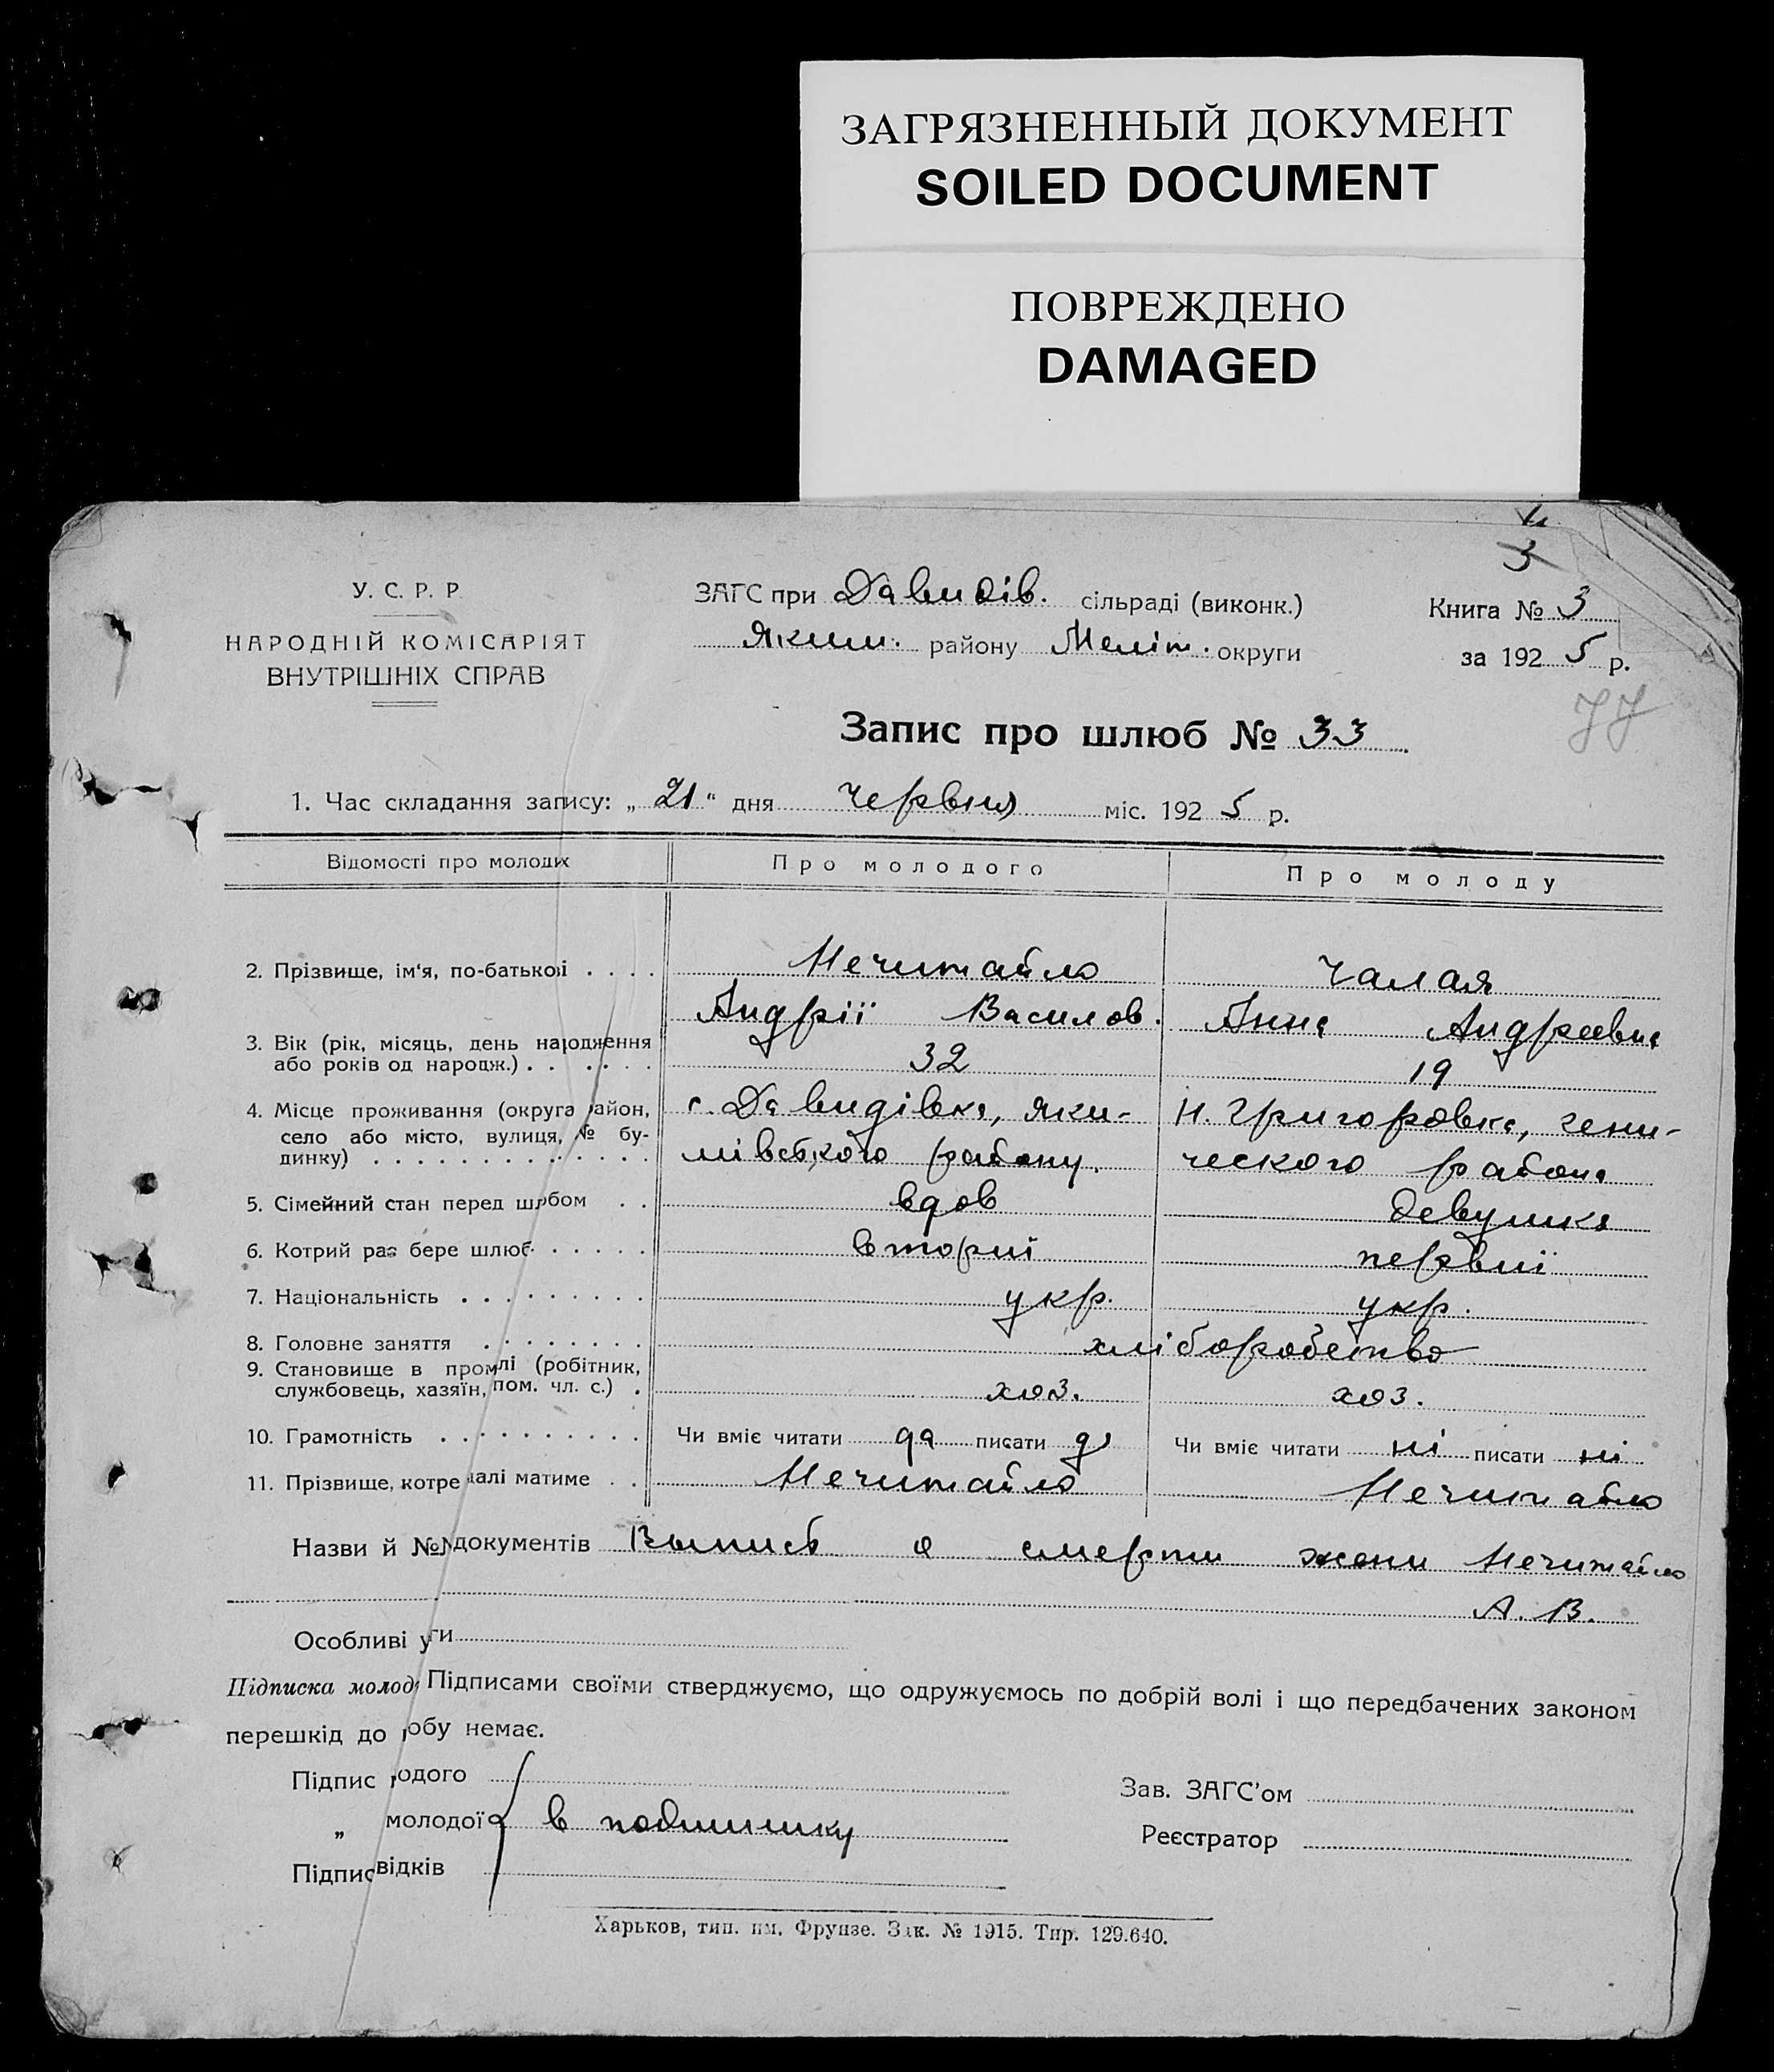 ЗАГРЯЗНЕННЫЙ ДОКУМЕНТ
SOILED DOCUMENT
ПОВРЕЖДЕНО
DAMAGED
3
У. С. Р. Р
НАРОДНІЙ КОМІСАРІЯТ
ВНУТРІШНІХ СПРАВ
ЗАГС при Давидів. сільраді (виконк.)
Яким. району Меліт. округи
Книга № 3
за 1925 р.
77
Запис про шлюб № 33
1. Час складання запису: „21“ дня червня міс. 1925 р.
Відомості про молодих Про молодого Про молоду
2. Прізвище, ім'я, по-батькові . . . . Нечитайло Чалая
Андрії Василов. Анна Андреевна
3. Вік (рік, місяць, день народження
або років од народж.) . . . . . . 32 19
4. Місце проживання (округа район, с. Давидівка, Яки- Н. Григоровка, Гени-
село або місто, вулиця, № бу- мівського району. ческого района
динку) . . . . . . . . . . . . .
5. Сімейний стан перед шлюбом . . вдов девушка
6. Котрий раз бере шлюб . . . . . . вторні первиї
7. Національність . . . . . . . . . укр. укр.
8. Головне заняття . . . . . . . . хліборобство
9. Становище в промлі (робітник,
службовець, хазяїн, пом. чл. с.) . хоз. хоз.
10. Грамотність . . . . . . . . . . Чи вміє читати да писати да Чи вміє читати ні писати ні
11. Прізвище, котре далі матиме . . Нечитайло Нечитайло
Назви й №№ документів Выпись о смерти жени Нечитайло
А. В.
Особливі уги
Підписка молод Підписами своїми стверджуємо, що одружуємось по добрій волі і що передбачених законом
перешкід до обу немає.
Підпис одого
„ молодої в подлиннику
Підпис відків
Зав. ЗАГС'ом
Реєстратор
Харьков, тип. им. Фрунзе. Зак. № 1915. Тир. 129.640.